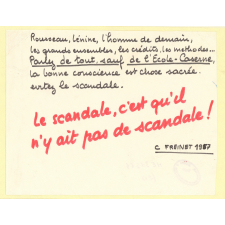 Rousseau, Lénine, l'homme de demain,
les grands ensembles, les crédits, les méthodes...
Parlez de tout, sauf de l'École-Caserne,
la bonne conscience est chose sacrée.
evitez le scandale.
Le scandale, c'est qu'il
n'y ait pas de scandale !
C FREINET 1957